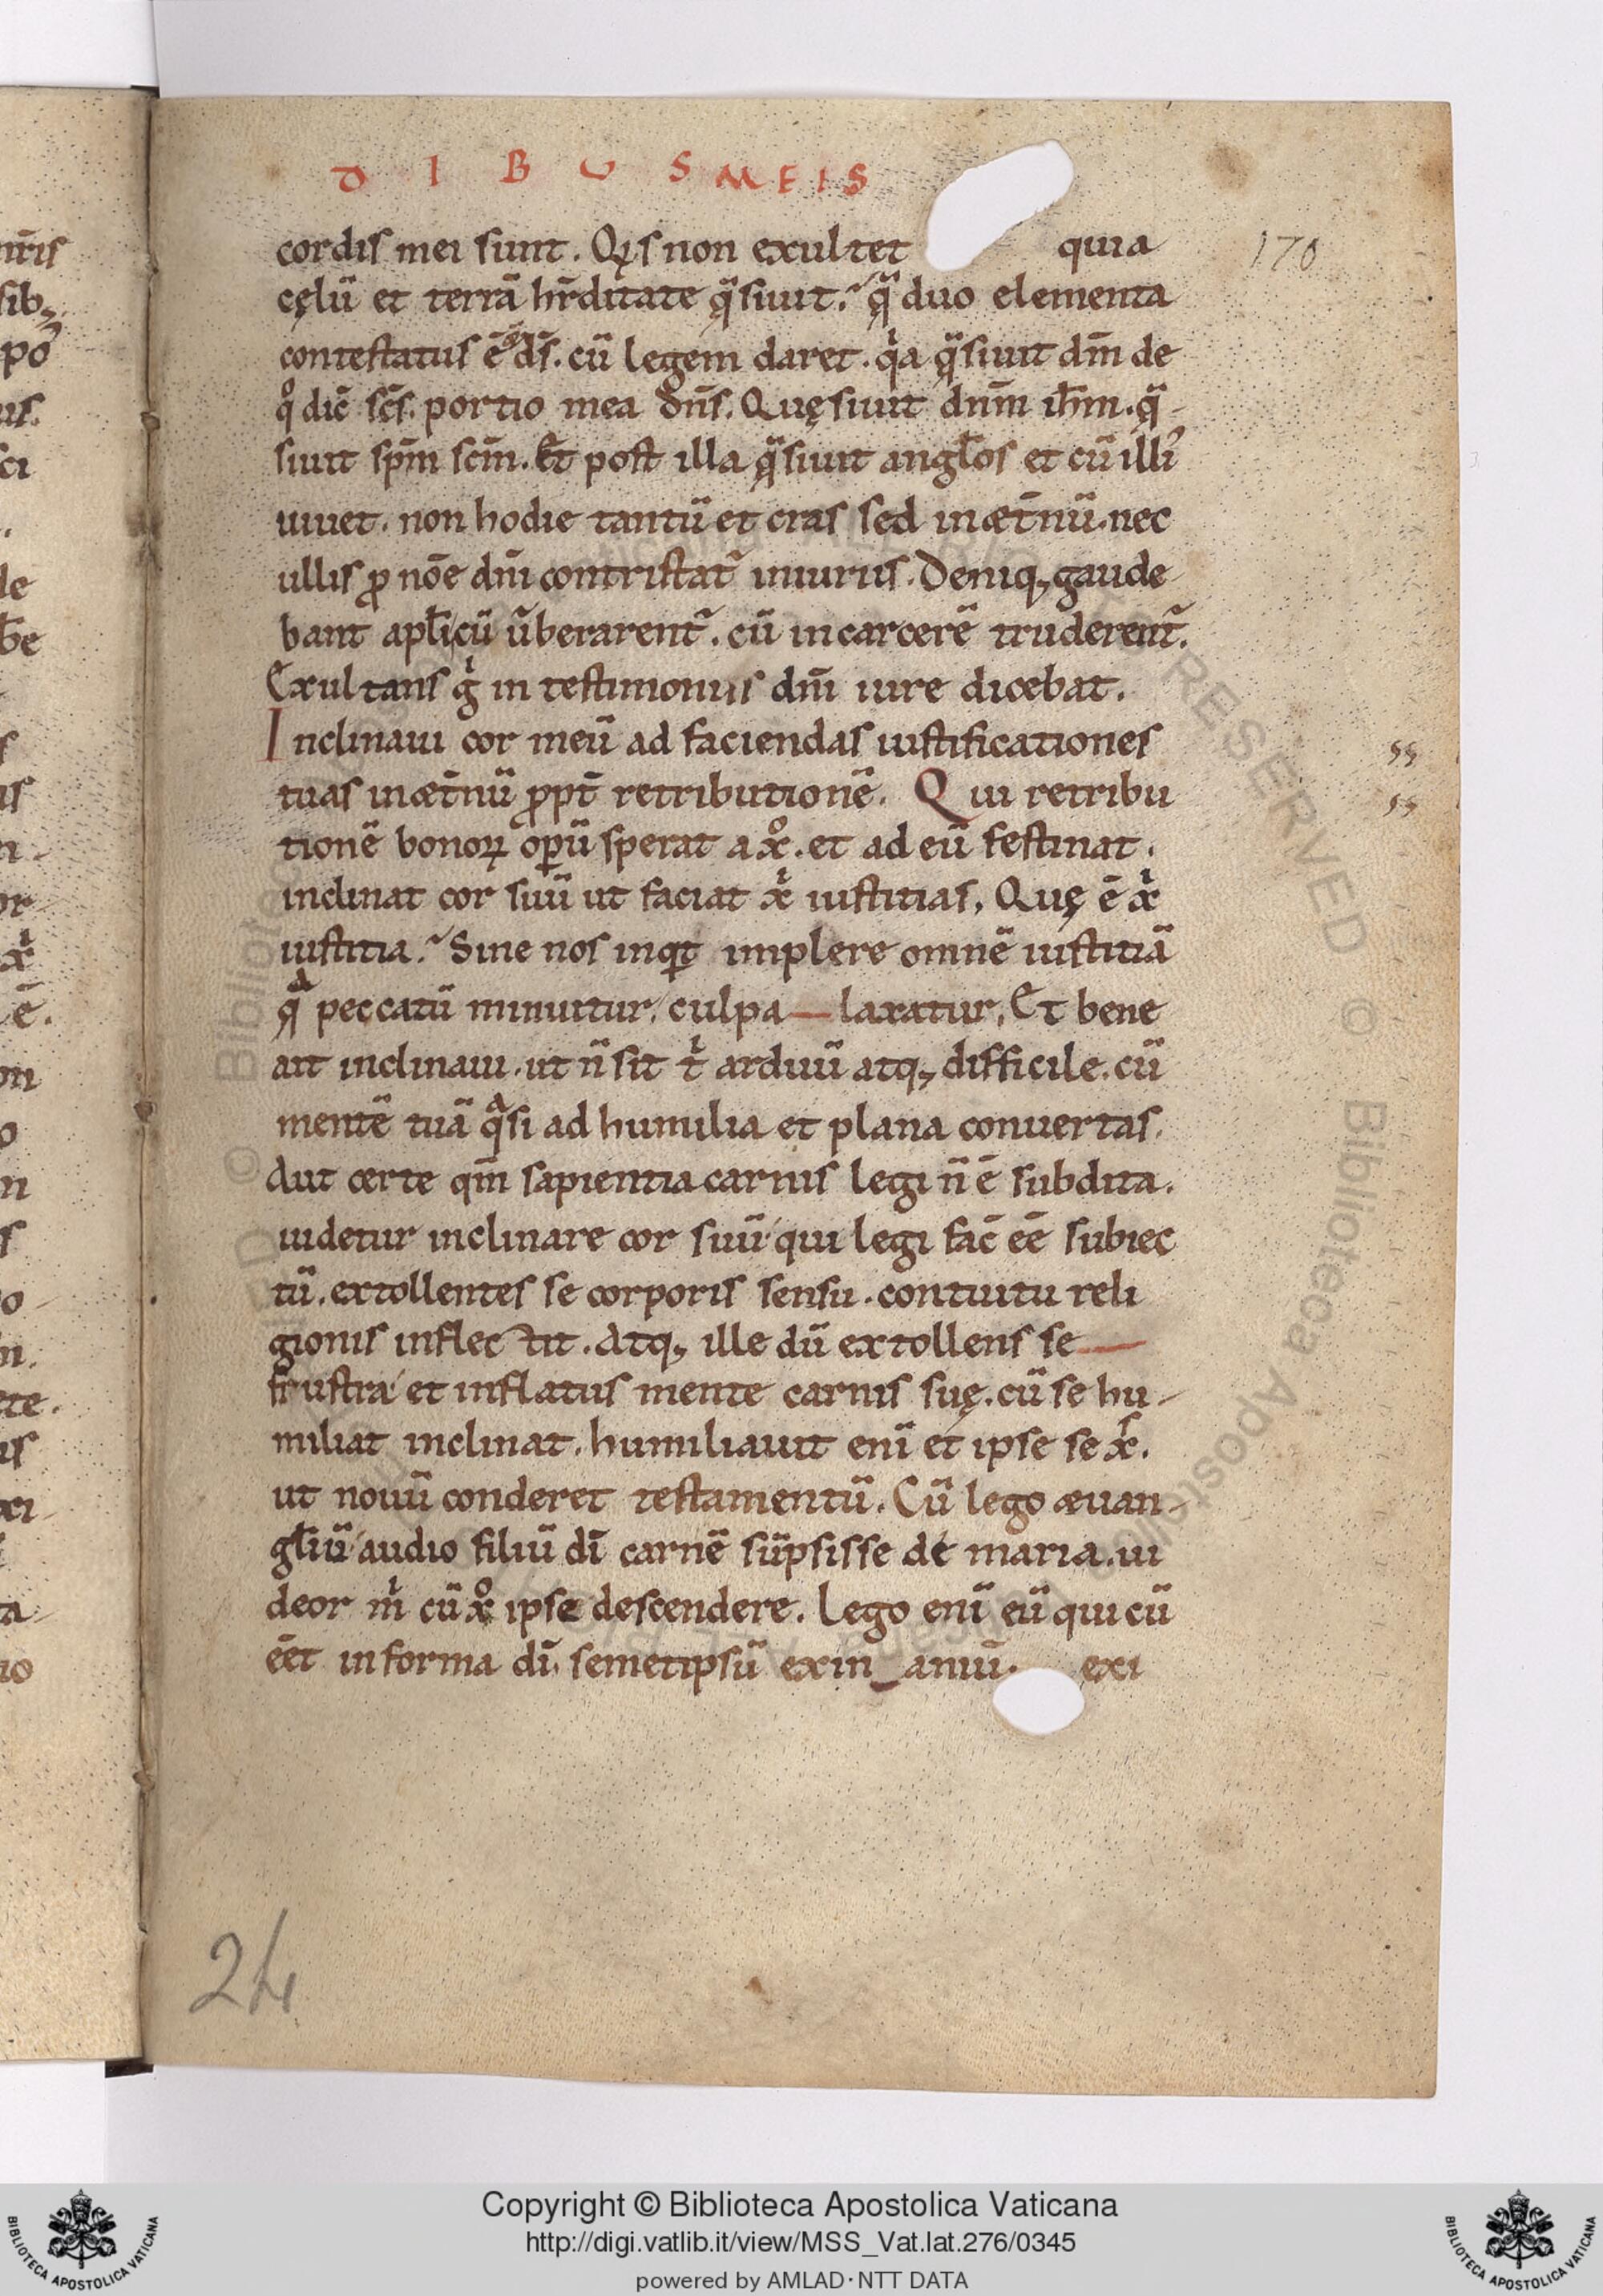 D I B U S MEIS
cordis mei sunt. Qͥs non exultet quia
cęlū et terrā hr̄ditate q̨ᷓsiuit. q̨ᷓ duo elementa
contestatus ē ds̄. cū legem daret. qͥa q̨ᷓsiuit dm̄ de
qͦ dic̄ sc̄s. portio mea dn̄s. Quęsiuit dnm̄ ih̄m. q̨ᷓ
siuit sp̄m sc̄m. Et post illa q̨ᷓsiuit angl̄os et cū illiˀ
uiuet. non hodie tantū et cras sed in æt̄nū. nec
ullis ꝓ nōe dn̄i contristat᷑ iniuriis. Deniq; gaude
bant apl̄i cū ūberarent᷑. cū in carcerē truderent᷑.
Exultans gͥ in testimoniis dn̄i iure dicebat.
Inclinaui cor meū ad faciendas iustificationes
tuas in æt̄nū ꝓpt̄ retributionē. Qui retribu
tionē bonoꝝ opeꝝū sperat a xͦ. et ad eū festinat.
inclinat cor suū ut faciat xͥ iustitias, Quę ē xͥ
iustitia. Sine nos inqͥt implere omnē iustitiā
qͣ peccatū minuitur, culpa laxatur, Et bene
ait inclinaui. ut n̄ sit tͥ arduū atq; difficile. cū
mentē tuā qͣsi ad humilia et plana conuertas.
Aut certe qm̄ sapientia carnis legi n̄ ē subdita.
uidetur inclinare cor suū qui legi fac̄ eē subiec
tū. extollentes se corporis sensu. contuitu reli
gionis inflectit. Atq; ille dū extollens se
frustra et inflatus mente carnis suę. cū se hu-
miliat inclinat. humiliauit enī et ipse se xc̄.
ut nouū conderet testamentū. Cū lego æuan-
gl̄iū audio filiū dī carnē sūpsisse de maria. ui
deor mͥ cū xͦ ipse descendere. Lego enī eū qui cū
eēt in forma dī. semetipsū exinaniū. exi
170
ss
ss
24
Copyright © Biblioteca Apostolica Vaticana
http://digi.vatlib.it/view/MSS_Vat.lat.276/0345
powered by AMLAD·NTT DATA
BIBLIOTECA APOSTOLICA VATICANA
BIBLIOTECA APOSTOLICA VATICANA